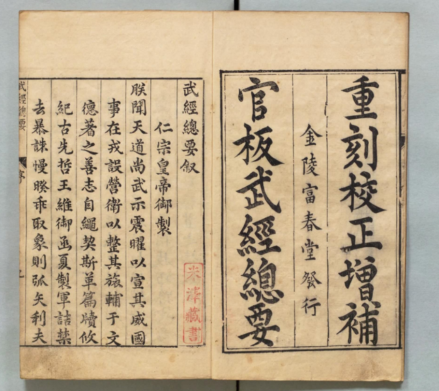 重刻校正增補
金陵富春堂發行
官板武經總要
武經總要叙
仁宗皇帝御製
朕聞天道尚武示震曜以宣其威國
事在戎設營衛以整其旅輔于文
德著之善志自繩契斯革篇牘攸
紀古先哲王維御函夏製軍詰禁
去暴誅慢暌乖取象則弧矢利夫
米澤藏書
武經總要